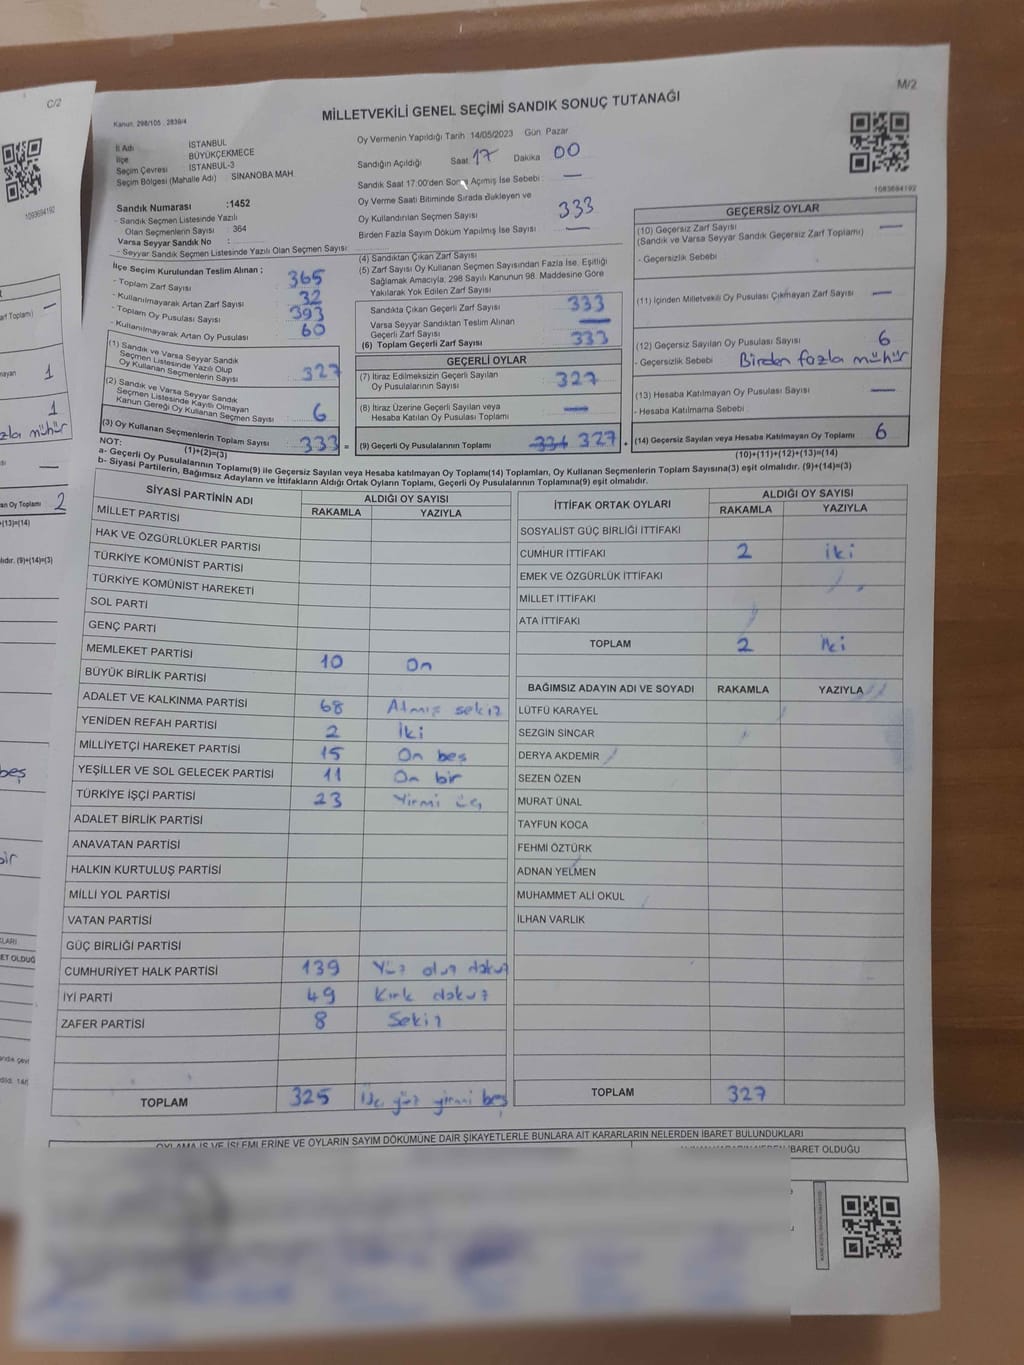 C/2
1093694192
M/2
Kanun. 298/105 . 2839/4
MİLLETVEKİLİ GENEL SEÇİMİ SANDIK SONUÇ TUTANAĞI
İl Adı İSTANBUL
İlçe BÜYÜKÇEKMECE
Seçim Çevresi İSTANBUL-3
Seçim Bölgesi (Mahalle Adı) : SİNANOBA MAH.
Oy Vermenin Yapıldığı Tarih : 14/05/2023 Gün: Pazar
Sandığın Açıldığı Saat 17 Dakika 00
Sandık Saat 17:00'den Sonra Açımış İse Sebebi : —
Sandık Numarası :1452
- Sandık Seçmen Listesinde Yazılı
Olan Seçmenlerin Sayısı : 364
Varsa Seyyar Sandık No :
- Seyyar Sandık Seçmen Listesinde Yazılı Olan Seçmen Sayısı:
Oy Verme Saati Bitiminde Sırada Bekleyen ve
Oy Kullandırılan Seçmen Sayısı 333
Birden Fazla Sayım Döküm Yapılmış İse Sayısı —
1093694192
İlçe Seçim Kurulundan Teslim Alınan ;
- Toplam Zarf Sayısı : 365
- Kullanılmayarak Artan Zarf Sayısı : 32
- Toplam Oy Pusulası Sayısı : 393
- Kullanılmayarak Artan Oy Pusulası : 60
(1) Sandık ve Varsa Seyyar Sandık
Seçmen Listesinde Yazılı Olup
Oy Kullanan Seçmenlerin Sayısı : 327
(2) Sandık ve Varsa Seyyar Sandık
Seçmen Listesinde Kayıtlı Olmayan
Kanun Gereği Oy Kullanan Seçmen Sayısı : 6
(3) Oy Kullanan Seçmenlerin Toplam Sayısı 333 =
(1)+(2)=(3)
(4) Sandıktan Çıkan Zarf Sayısı
(5) Zarf Sayısı Oy Kullanan Seçmen Sayısından Fazla İse, Eşitliği
Sağlamak Amacıyla, 298 Sayılı Kanunun 98. Maddesine Göre
Yakılarak Yok Edilen Zarf Sayısı
Sandıkta Çıkan Geçerli Zarf Sayısı 333
Varsa Seyyar Sandıktan Teslim Alınan
Geçerli Zarf Sayısı —
(6) Toplam Geçerli Zarf Sayısı 333
GEÇERLİ OYLAR
(7) İtiraz Edilmeksizin Geçerli Sayılan
Oy Pusulalarının Sayısı 327
(8) İtiraz Üzerine Geçerli Sayılan veya
Hesaba Katılan Oy Pusulası Toplamı —
(9) Geçerli Oy Pusulalarının Toplamı 327 +
GEÇERSİZ OYLAR
(10) Geçersiz Zarf Sayısı —
(Sandık ve Varsa Seyyar Sandık Geçersiz Zarf Toplamı)
- Geçersizlik Sebebi
(11) İçinden Milletvekili Oy Pusulası Çıkmayan Zarf Sayısı —
(12) Geçersiz Sayılan Oy Pusulası Sayısı 6
- Geçersizlik Sebebi : Birden fazla mühür
(13) Hesaba Katılmayan Oy Pusulası Sayısı —
- Hesaba Katılmama Sebebi :
(14) Geçersiz Sayılan veya Hesaba Katılmayan Oy Toplamı 6
(10)+(11)+(12)+(13)=(14)
NOT:
a- Geçerli Oy Pusulalarının Toplamı(9) ile Geçersiz Sayılan veya Hesaba katılmayan Oy Toplamı(14) Toplamları, Oy Kullanan Seçmenlerin Toplam Sayısına(3) eşit olmalıdır. (9)+(14)=(3)
b- Siyasi Partilerin, Bağımsız Adayların ve İttifakların Aldığı Ortak Oyların Toplamı, Geçerli Oy Pusulalarının Toplamına(9) eşit olmalıdır.
SİYASİ PARTİNİN ADI ALDIĞI OY SAYISI
RAKAMLA YAZIYLA
MİLLET PARTİSİ
HAK VE ÖZGÜRLÜKLER PARTİSİ
TÜRKİYE KOMÜNİST PARTİSİ
TÜRKİYE KOMÜNİST HAREKETİ
SOL PARTİ
GENÇ PARTİ
MEMLEKET PARTİSİ 10 On
BÜYÜK BİRLİK PARTİSİ
ADALET VE KALKINMA PARTİSİ 68 Atmış sekiz
YENİDEN REFAH PARTİSİ 2 İki
MİLLİYETÇİ HAREKET PARTİSİ 15 On beş
YEŞİLLER VE SOL GELECEK PARTİSİ 11 On bir
TÜRKİYE İŞÇİ PARTİSİ 23 Yirmi üç
ADALET BİRLİK PARTİSİ
ANAVATAN PARTİSİ
HALKIN KURTULUŞ PARTİSİ
MİLLİ YOL PARTİSİ
VATAN PARTİSİ
GÜÇ BİRLİĞİ PARTİSİ
CUMHURİYET HALK PARTİSİ 139 Yüz otuz dokuz
İYİ PARTİ 49 Kırk dokuz
ZAFER PARTİSİ 8 Sekiz
TOPLAM 325 Üç yüz yirmi beş
İTTİFAK ORTAK OYLARI ALDIĞI OY SAYISI
RAKAMLA YAZIYLA
SOSYALİST GÜÇ BİRLİĞİ İTTİFAKI
CUMHUR İTTİFAKI 2 iki
EMEK VE ÖZGÜRLÜK İTTİFAKI
MİLLET İTTİFAKI
ATA İTTİFAKI
TOPLAM 2 İki
BAĞIMSIZ ADAYIN ADI VE SOYADI RAKAMLA YAZIYLA
LÜTFÜ KARAYEL
SEZGİN SİNCAR
DERYA AKDEMİR
SEZEN ÖZEN
MURAT ÜNAL
TAYFUN KOCA
FEHMİ ÖZTÜRK
ADNAN YELMEN
MUHAMMET ALİ OKUL
İLHAN VARLIK
TOPLAM 327
OYLAMA İŞ VE İŞLEMLERİNE VE OYLARIN SAYIM DÖKÜMÜNE DAİR ŞİKAYETLERLE BUNLARA AİT KARARLARIN NELERDEN İBARET BULUNDUKLARI
İBARET OLDUĞU